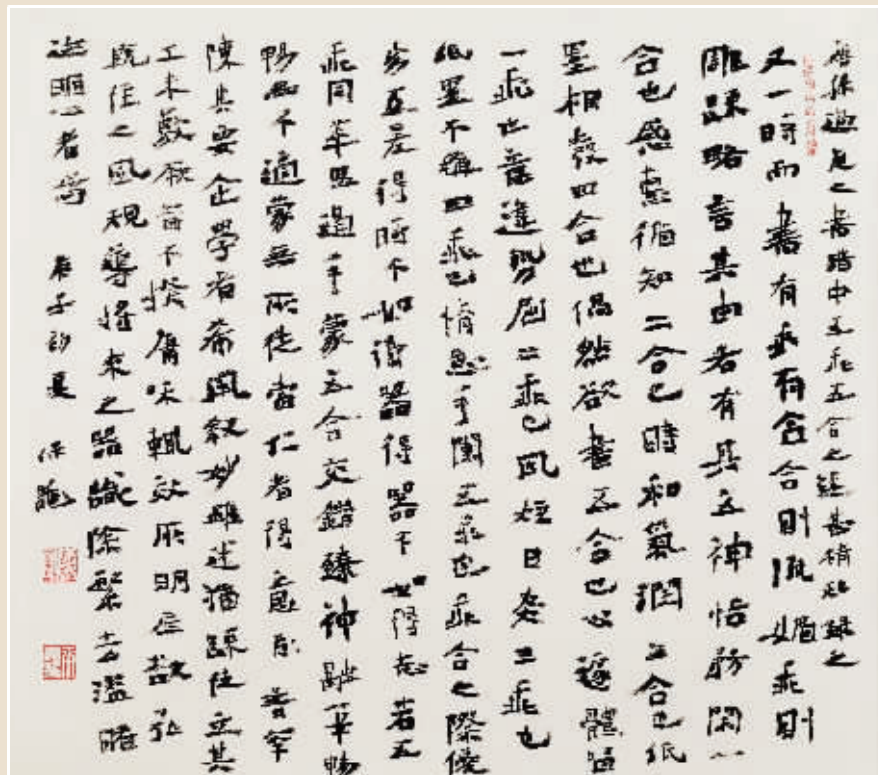 孫過庭之書譜中五乖五合之甚精故錄之
又一時而書有乖有合合則流媚乖則
雕疎略言其由各有其五神怡務閑一
合也感惠徇知二合也時和氣潤三合也紙
墨相發四合也偶然欲書五合也心遽體留
一乖也意違勢屈二乖也風燥日炎三乖也
紙墨不稱四乖也情怠手闌五乖也乖合之際優
劣互差得時不如得器得器不如得志若五
乖同萃思遏手蒙五合交錯臻神融筆暢
暢無不適蒙無所從當仁者得意忘言罕
陳其要企學者希風敘妙雖述猶疎徒立其
工未敷厥旨不揆庸昧輒效所明庶欲弘
既往之風規導將來之器識除繁去濫睹
迹明心者焉 庚子初夏 保